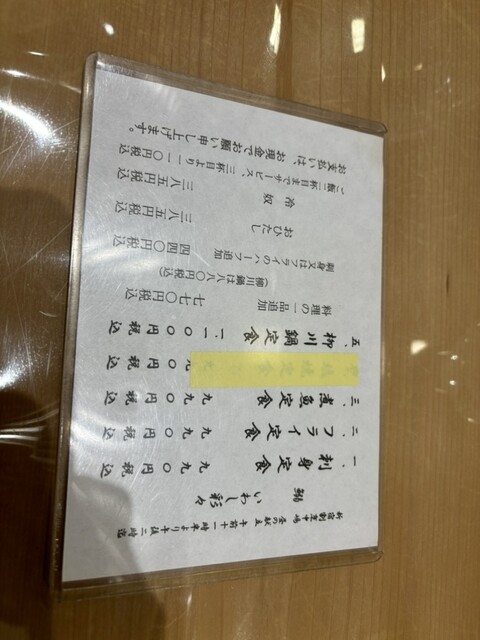 新宿割烹中嶋 昼の献立 午前十一時半より午後二時迄
鰯 いわし彩々
一、刺身定食 九九〇円 税込
二、フライ定食 九九〇円 税込
三、煮魚定食 九九〇円 税込
塩焼定食 〇円 税込
五、柳川鍋定食 一、一〇〇円 税込
料理の一品追加 七七〇円税込
（柳川鍋は八八〇円税込）
刺身又はフライのハーフ追加 四四〇円税込
おひたし 三八五円税込
冷奴 三八五円税込
ご飯二杯目までサービス、三杯目より一一〇円税込
お支払いは、お現金でお願い申し上げます。